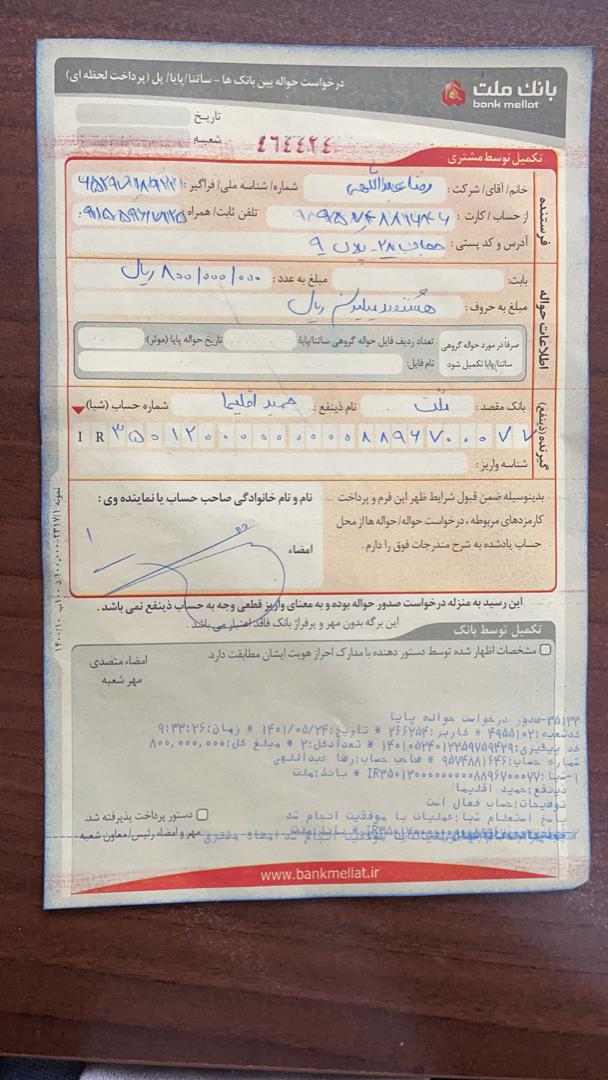 بانک ملت
bank mellat
درخواست حواله بین بانک ها - ساتنا/پایا/ پل (پرداخت لحظه ای)
تاریخ
شعبه
۴۶۴۴۲۴
تکمیل توسط مشتری
فرستنده
خانم/ آقای/ شرکت : رضا عبداللهی شماره/ شناسه ملی/ فراگیر :
از حساب/ کارت : تلفن ثابت/ همراه :
آدرس و کد پستی : پلاک ۹
اطلاعات حواله
بابت: مبلغ به عدد : ۸۰۰/۰۰۰/۰۰۰ ریال
مبلغ به حروف : هشتصد میلیون ریال
صرفاً در مورد حواله گروهی ساتنا/پایا تکمیل شود
تعداد ردیف فایل حواله گروهی ساتنا/پایا: تاریخ حواله پایا (موثر):
نام فایل:
گیرنده (ذینفع)
بانک مقصد : ملت نام ذینفع : حمید اقلیما شماره حساب (شبا)
I R ۳۵۰۱۲۰۰۰۰۰۰۰۰۰۸۸۹۶۷۰۰۰۷۷
شناسه واریز :
بدینوسیله ضمن قبول شرایط ظهر این فرم و پرداخت
کارمزدهای مربوطه ، درخواست حواله/ حواله ها از محل
حساب یادشده به شرح مندرجات فوق را دارم .
نام و نام خانوادگی صاحب حساب یا نماینده وی :
امضاء
این رسید به منزله درخواست صدور حواله بوده و به معنای واریز قطعی وجه به حساب ذینفع نمی باشد .
این برگه بدون مهر و پرفراژ بانک فاقد اعتبار می باشد .
تکمیل توسط بانک
مشخصات اظهار شده توسط دستور دهنده با مدارک احراز هویت ایشان مطابقت دارد.
امضاء متصدی
مهر شعبه
۳۵۱۳۳-صدور درخواست حواله پایا
کدشعبه:۴۹۵۵۱۰۲ * کاربر:۲۶۶۲۵۴ * تاریخ:۱۴۰۱/۰۵/۲۴ * زمان:۹:۳۳:۲۶
کد پیگیری:۱۴۰۱۰۵۲۴۰۱۲۲۵۹۷۵۹۴۲۹ * تعدادکل:۲ * مبلغ کل:۸۰۰,۰۰۰,۰۰۰
شماره حساب:۹۵۷۴۸۸۱۶۴۶ * صاحب حساب:رضا عبداللهی
۱-شبا:IR۳۵۰۱۲۰۰۰۰۰۰۰۰۰۸۸۹۶۷۰۰۰۷۷ * بانک:ملت
ذینفع:حمید اقلیما
توضیحات:حساب فعال است
پاسخ استعلام شبا:عملیات با موفقیت انجام شد
دستور پرداخت پذیرفته شد.
مهر و امضاء رئیس/ معاون شعبه
www.bankmellat.ir